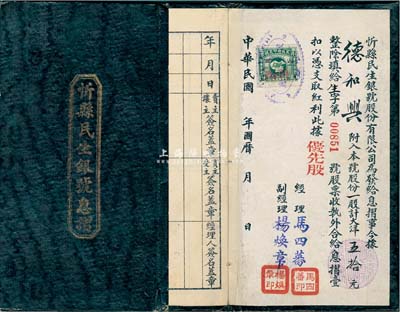 忻縣民生銀號息摺
忻縣民生銀號股份有限公司為發給息摺事今據
德和興 附入本號股份一股計大洋五拾元
整除填給生字第00851號股票收執外合給息摺壹
扣以憑支取紅利此據 優先股
經理 馬四蕃
副經理 楊煥章
中華民國 年國曆 月 日
年 月 日
賣主簽名蓋章
買主簽名蓋章
經理人簽名蓋章